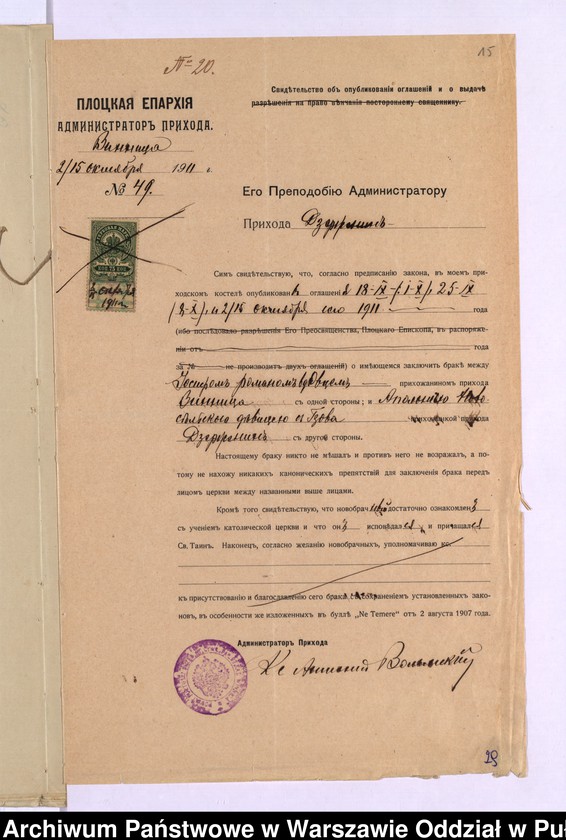 15
№ 20.
Свидѣтельство объ опубликованіи оглашеній и о выдачѣ
разрѣшенія на право вѣнчанія постороннему священнику.
ПЛОЦКАЯ ЕПАРХІЯ
АДМИНИСТРАТОРЪ ПРИХОДА.
Винница
2/15 октября 1911 г.
№ 49.
Его Преподобію Администратору
Прихода
1911
Симъ свидѣтельствую, что, согласно предписанію закона, въ моемъ при-
ходскомъ костелѣ опубликован оглашені 18-IX /1-X/, 25-IX
/8-X/, и 2/15 октября сего 1911 года
(ибо послѣдовало разрѣшеніе Его Преосвященства, Плоцкаго Епископа, въ распоряже-
ніи отъ года
за № не производитъ двухъ оглашеній) о имѣющемся заключитъ бракѣ между
вдовцемъ прихожаниномъ прихода
Винница съ одной стороны; и
дѣвицею прихода
съ другой стороны.
Настоящему браку никто не мѣшалъ и противъ него не возражалъ, а по-
тому не нахожу никакихъ каноническихъ препятствій для заключенія брака передъ
лицомъ церкви между названными выше лицами.
Кромѣ того свидѣтельствую, что новобрач достаточно ознакомлен
съ ученіемъ католической церкви и что он исповѣдался и причащался
Св. Таинъ. Наконецъ, согласно желанію новобрачныхъ, уполномачиваю кс.
къ присутствованію и благославленію сего брака съ сохраненіемъ установленныхъ зако-
новъ, въ особенности же изложенныхъ въ буллѣ „Ne Temere" отъ 2 августа 1907 года.
Администраторъ Прихода
Кс Антоній
29
Archiwum Państwowe w Warszawie Oddział w Puł